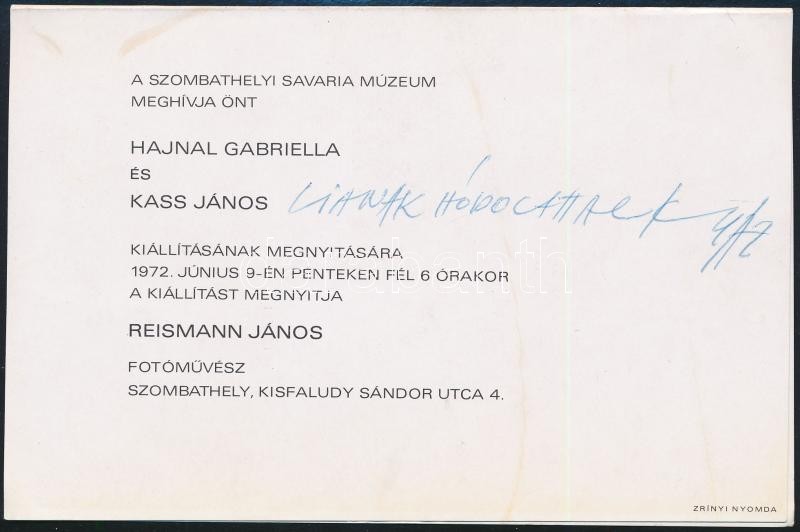 A SZOMBATHELYI SAVARIA MÚZEUM
MEGHÍVJA ÖNT
HAJNAL GABRIELLA
ÉS
KASS JÁNOS LIANAK
KIÁLLÍTÁSÁNAK MEGNYITÁSÁRA
1972. JÚNIUS 9-ÉN PÉNTEKEN FÉL 6 ÓRAKOR
A KIÁLLÍTÁST MEGNYITJA
REISMANN JÁNOS
FOTÓMŰVÉSZ
SZOMBATHELY, KISFALUDY SÁNDOR UTCA 4.
ZRÍNYI NYOMDA